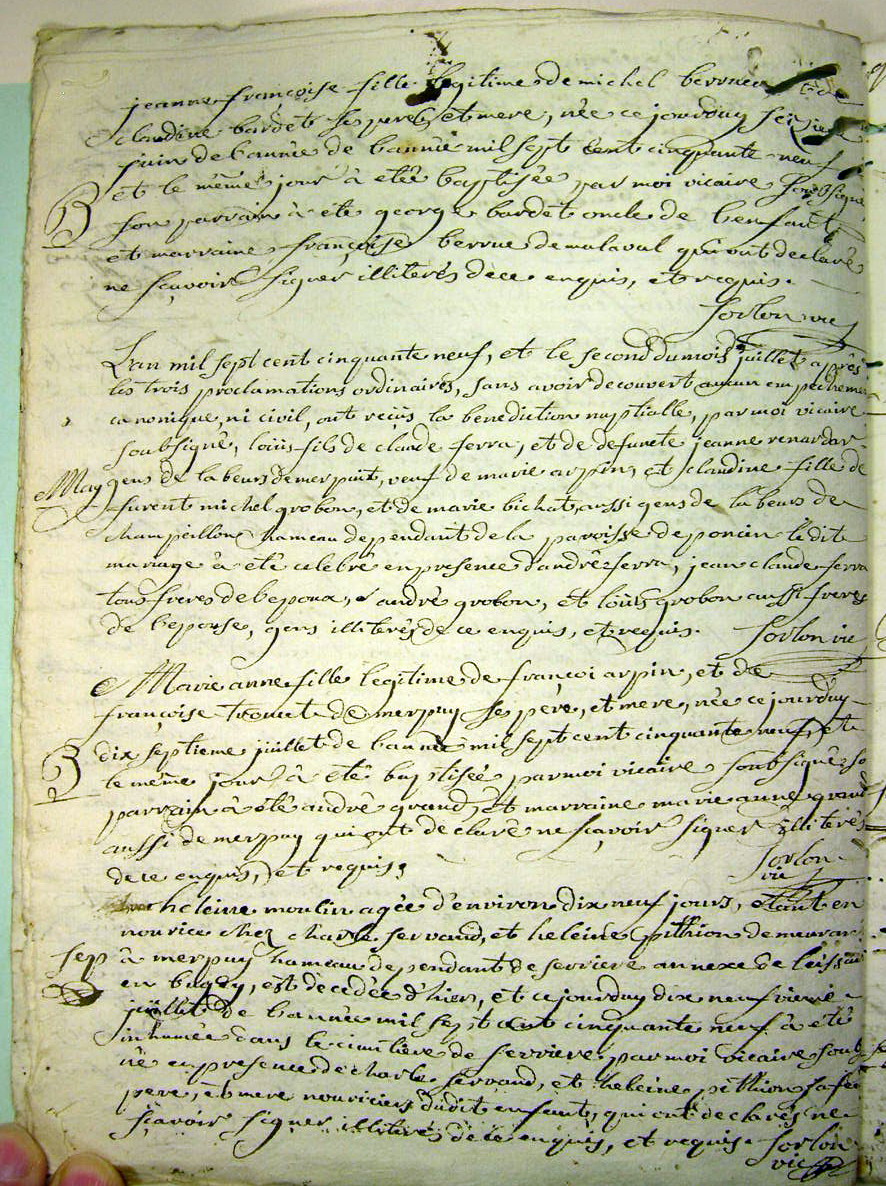 jeanne françoise fille legitime de michel berrue et de
claudine bardet ses pere, et mere, née ce jourduy seizieme
juin de l'année de l'année mil sept cent cinquante neuf
et le même jour à etée baptisée par moi vicaire soussigné
B
son parrain à eté george bardet oncle de l'enfant
et marraine françoise berrue de malaval qui ont declaré
ne sçavoir signer illiterés de ce enquis, et requis.
Sorlon vic
L'an mil sept cent cinquante neuf, et le second du mois juillet apprés
les trois proclamations ordinaires, sans avoir decouvert aucun empechement
canonique, ni civil, ont reçüs la benediction nuptialle, par moi vicaire
soubsigné, loüis fils de claude ferra, et de defuncte jeanne renardar
May
gens de labeurs de merpuit, veuf de marie arpin, et claudine fille de
furent michel grobon, et de marie bichat aussi gens de labeurs de
champeillon hameau dependant de la paroisse de poncin ledit
mariage à eté celebré en presence d'andré ferra, jean claude ferra
tous freres de l'epoux, andré grobon, et loüis grobon aussi freres
de l'epouse, gens illiterés de ce enquis, et requis. Sorlon vic
Marie anne fille legitime de françoi arpin, et de
françoise trouet de merpuy ses pere, et mere, née ce jourduy
dix septieme juillet de l'année mil sept cent cinquante neuf, et
B
le même jour à eté baptisée par moi vicaire soubsigné so
parrain à eté andré grand, et marraine marie anne grand
aussi de merpuy qui ont declaré ne sçavoir signer illiterés
de ce enquis, et requis,
Sorlon
vic
heleine moulin agée d'environ dix neuf jours, etant en
nourice chez charle servand, et heleine pithion demeurar
sep
à merpuy hameau dependant de serriere annexe de
en bugey, est decedée d'hier, et ce jourduy dix neufvieme
juillet de l'année mil sept cent cinquante neuf à eté
inhumée dans le cimitiere de serriere par moi vicaire soub
né en presence de charle servand, et heleine pithion sa fe
pere, et mere nouriciers dudit enfant, qui ont declarés ne
sçavoir signer illiterés de ce enquis, et requis. Sorlon
vic